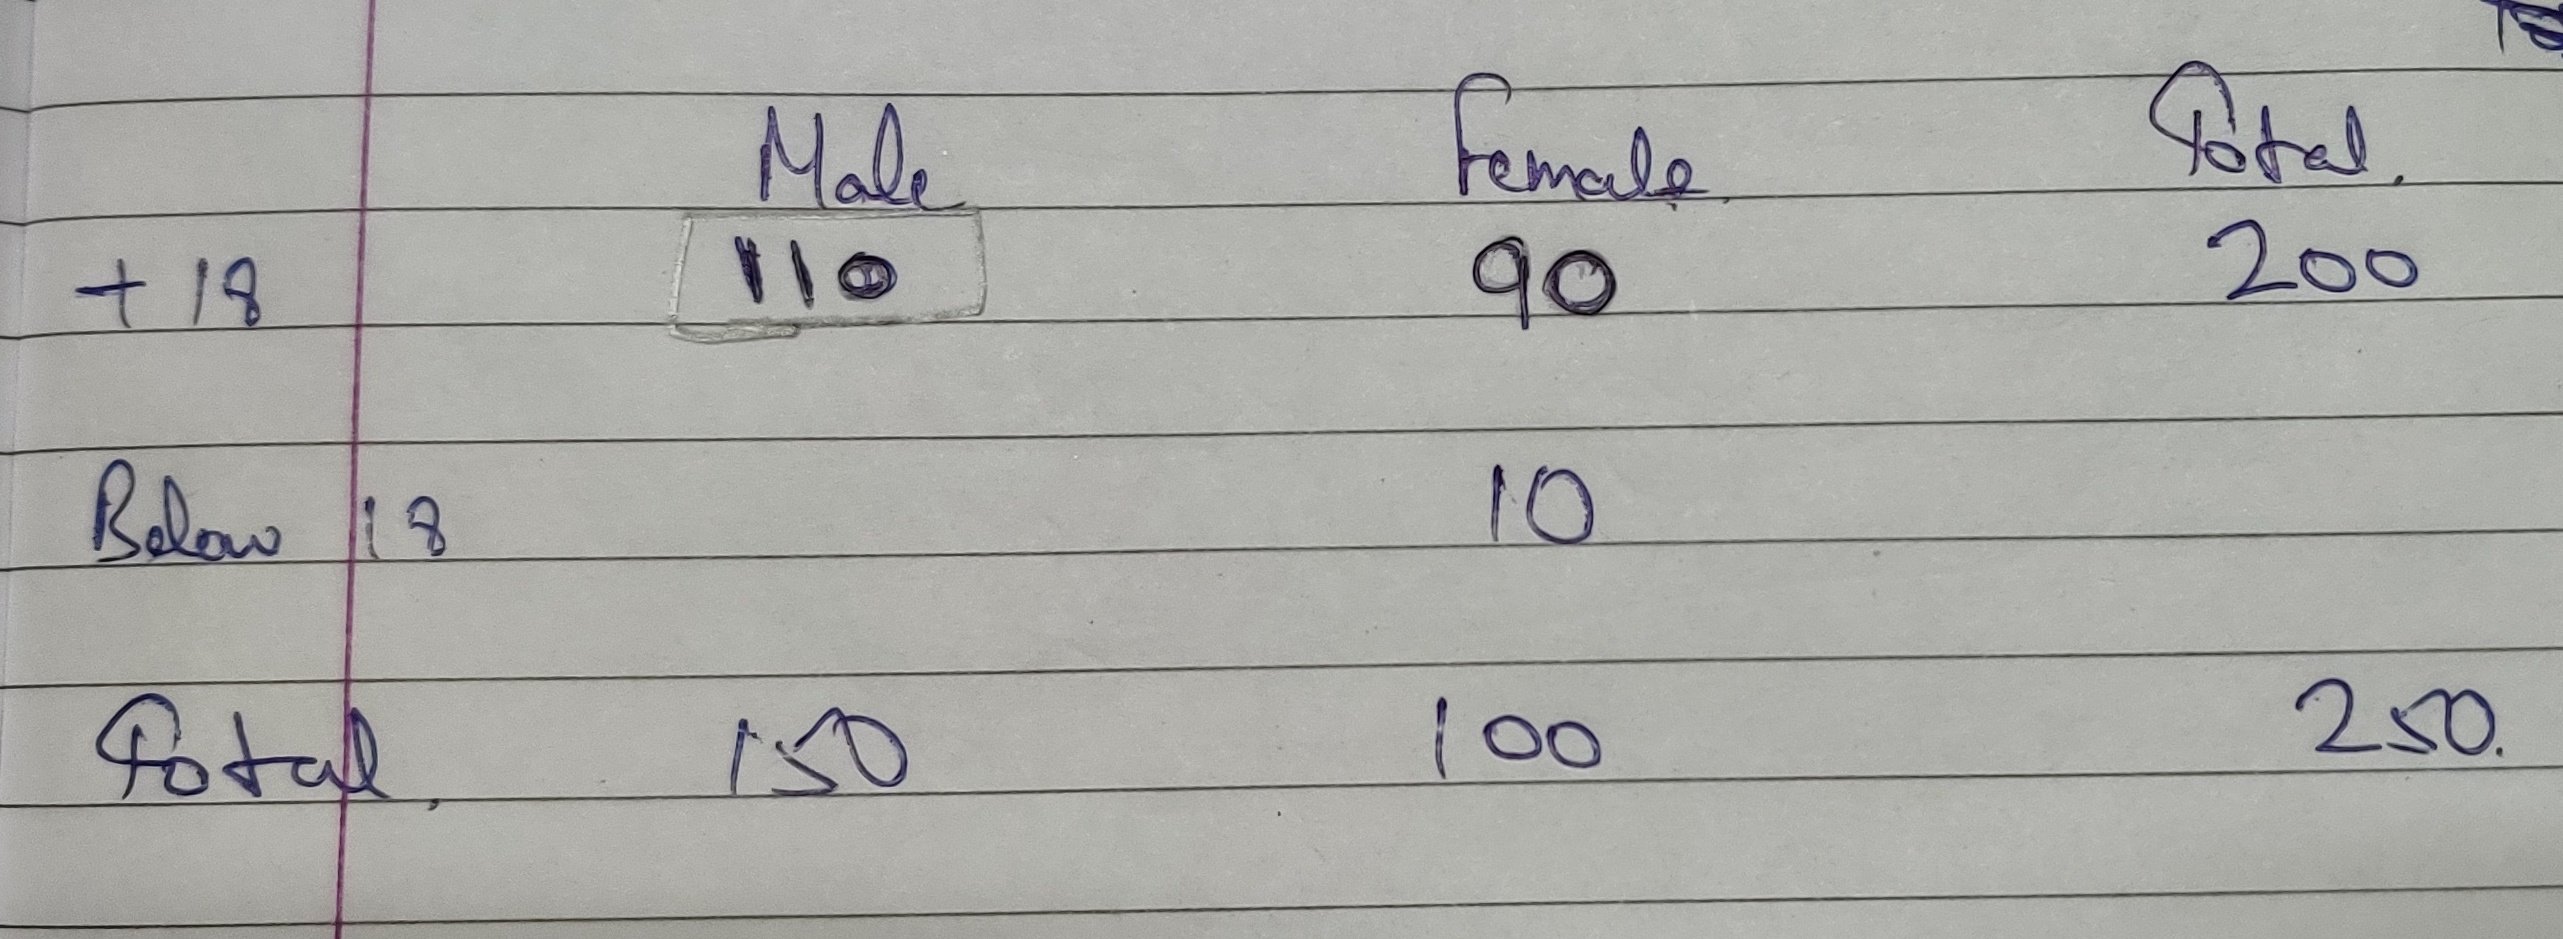 Male Female Total.
+ 18 110 90 200
Below 18 10
Total. 150 100 250.